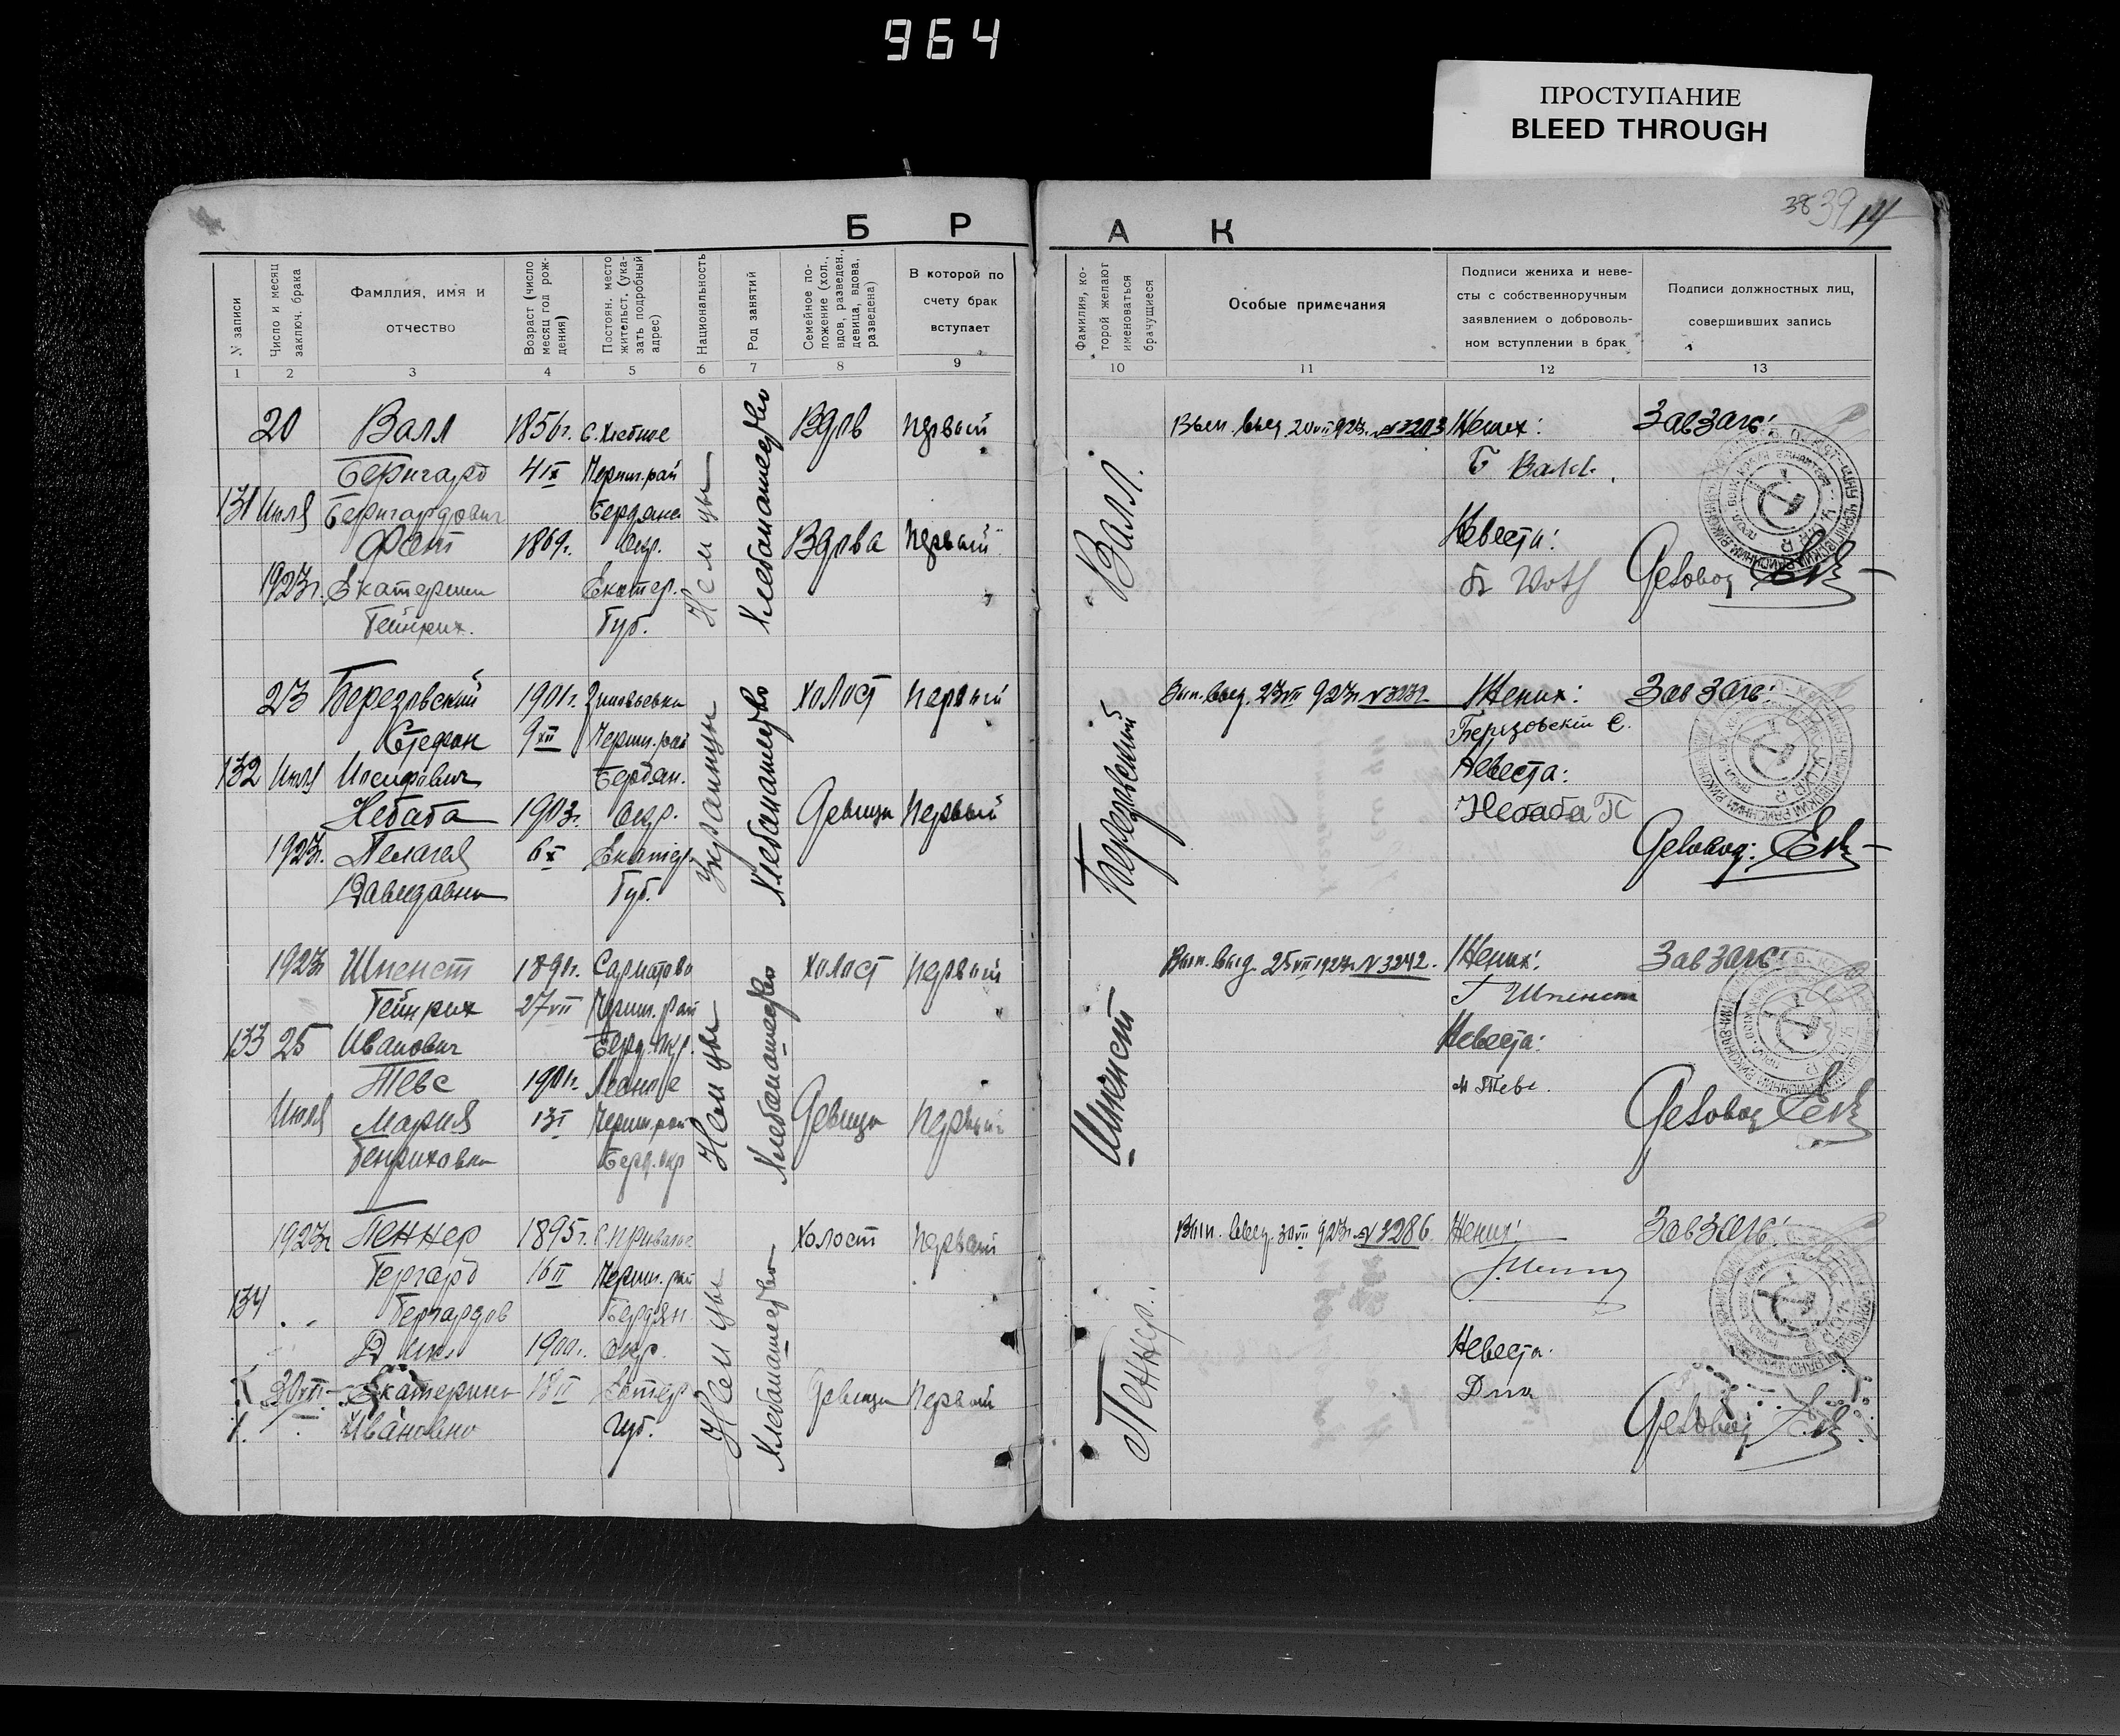 964
ПРОСТУПАНИЕ
BLEED THROUGH
38 39
Б Р А К
№ записи
Число и месяц заключ. брака
Фамллия, имя и отчество
Возраст (число месяц год рождения)
Постоян. место жительст. (указать подробный адрес)
Национальность
Род занятий
Семейное положение (хол., вдов, разведен., девица, вдова, разведена)
В которой по счету брак вступает
Фамилия, которой желают именоваться брачущиеся
Особые примечания
Подписи жениха и невесты с собственноручным заявлением о добровольном вступлении в брак
Подписи должностных лиц, совершивших запись
1 2 3 4 5 6 7 8 9 10 11 12 13
20 Валл 1856г. Вдов первый
Бернгард 4 IX Черниг. рай
131 Июля Бернгардович Бердянс
1869г. Окр. Вдова первый
1923г. Екатерина Екатер.
Гейнрих. Губ.
Немцы
Хлебопашество
Валл.
20 VII 923г. № 3203
Жених:
Б Валл.
Невеста:
Завзагс:
Деловод
23 Березовский 1901г. Зиновьевка холост первый
Стефан 9 XII Черниг. рай
132 Июля Иосифович Бердян.
Небаба 1903г. Окр. Девица первый
1923г. Пелагея 6 X Екатер.
Давидовна Губ.
Украинцы
Хлебопашество
Березовский
Вып. выд. 23 VII 923г. № 3232
Жених:
Березовскiй С.
Невеста:
Небаба П
Завзагс:
Деловод:
1923г Шпенст 1890г. холост первый
Гейнрих 27 VII Черниг. рай
133 25 Иванович Берд. окр.
Тевс 1901г.
Июля Мария 13 I Черниг. рай Девица первый
Генриховна Берд. окр
Немцы
Хлебопашество
Шпенст
Вып. выд. 25 VII 1923г. № 3242.
Жених:
Г Шпенст
Невеста:
М Тевс.
Завзагс:
Деловод
1923г Пеннер 1895г. холост первый
Гергард 16 II Черниг. рай
134 Гергардов Бердян.
Дик 1900г. Окр.
30 VII Екатерина 18 II Екатер Девица первый
Ивановна Губ.
Немцы
Хлебопашество
Пеннер.
Вып. выд. 30 VII 923г. № 3286.
Жених:
Невеста.
Завзагс:
Деловод